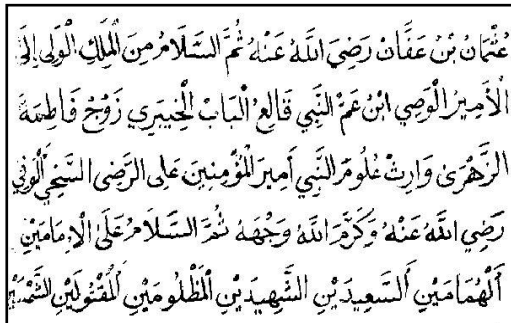 عُثْمَانُ بْنُ عَفَّانَ رَضِيَ اللَّهُ عَنْهُ ثُمَّ السَّلَامُ مِنَ الْمَلِكِ الْوَلِي إِلَى
الْأَمِيرُ الْوَصِي ابْنُ عَمِّ النَّبِي قَالِعُ الْبَابْ الْخَيْبَرِي زَوْجُ فَاطِمَةَ
الزَّهْرَى وَارِثْ عُلُومِ النَّبِي أَمِيرَ الْمُؤْمِنِينَ عَلِى الرَّضِى السَّخِي الْوَفِي
رَضِيَ اللَّهُ عَنْهُ وَكَرَّمَ اللَّهُ وَجْهَهُ ثُمَّ السَّلَامُ عَلَى الْإِمَامَيْنِ
أَلْهُمَامَيْنِ ألسَّعِيدَيْنِ الشَّهِيدَيْنِ الْمَظْلُومَيْنِ الْمَقْتُولَيْنِ